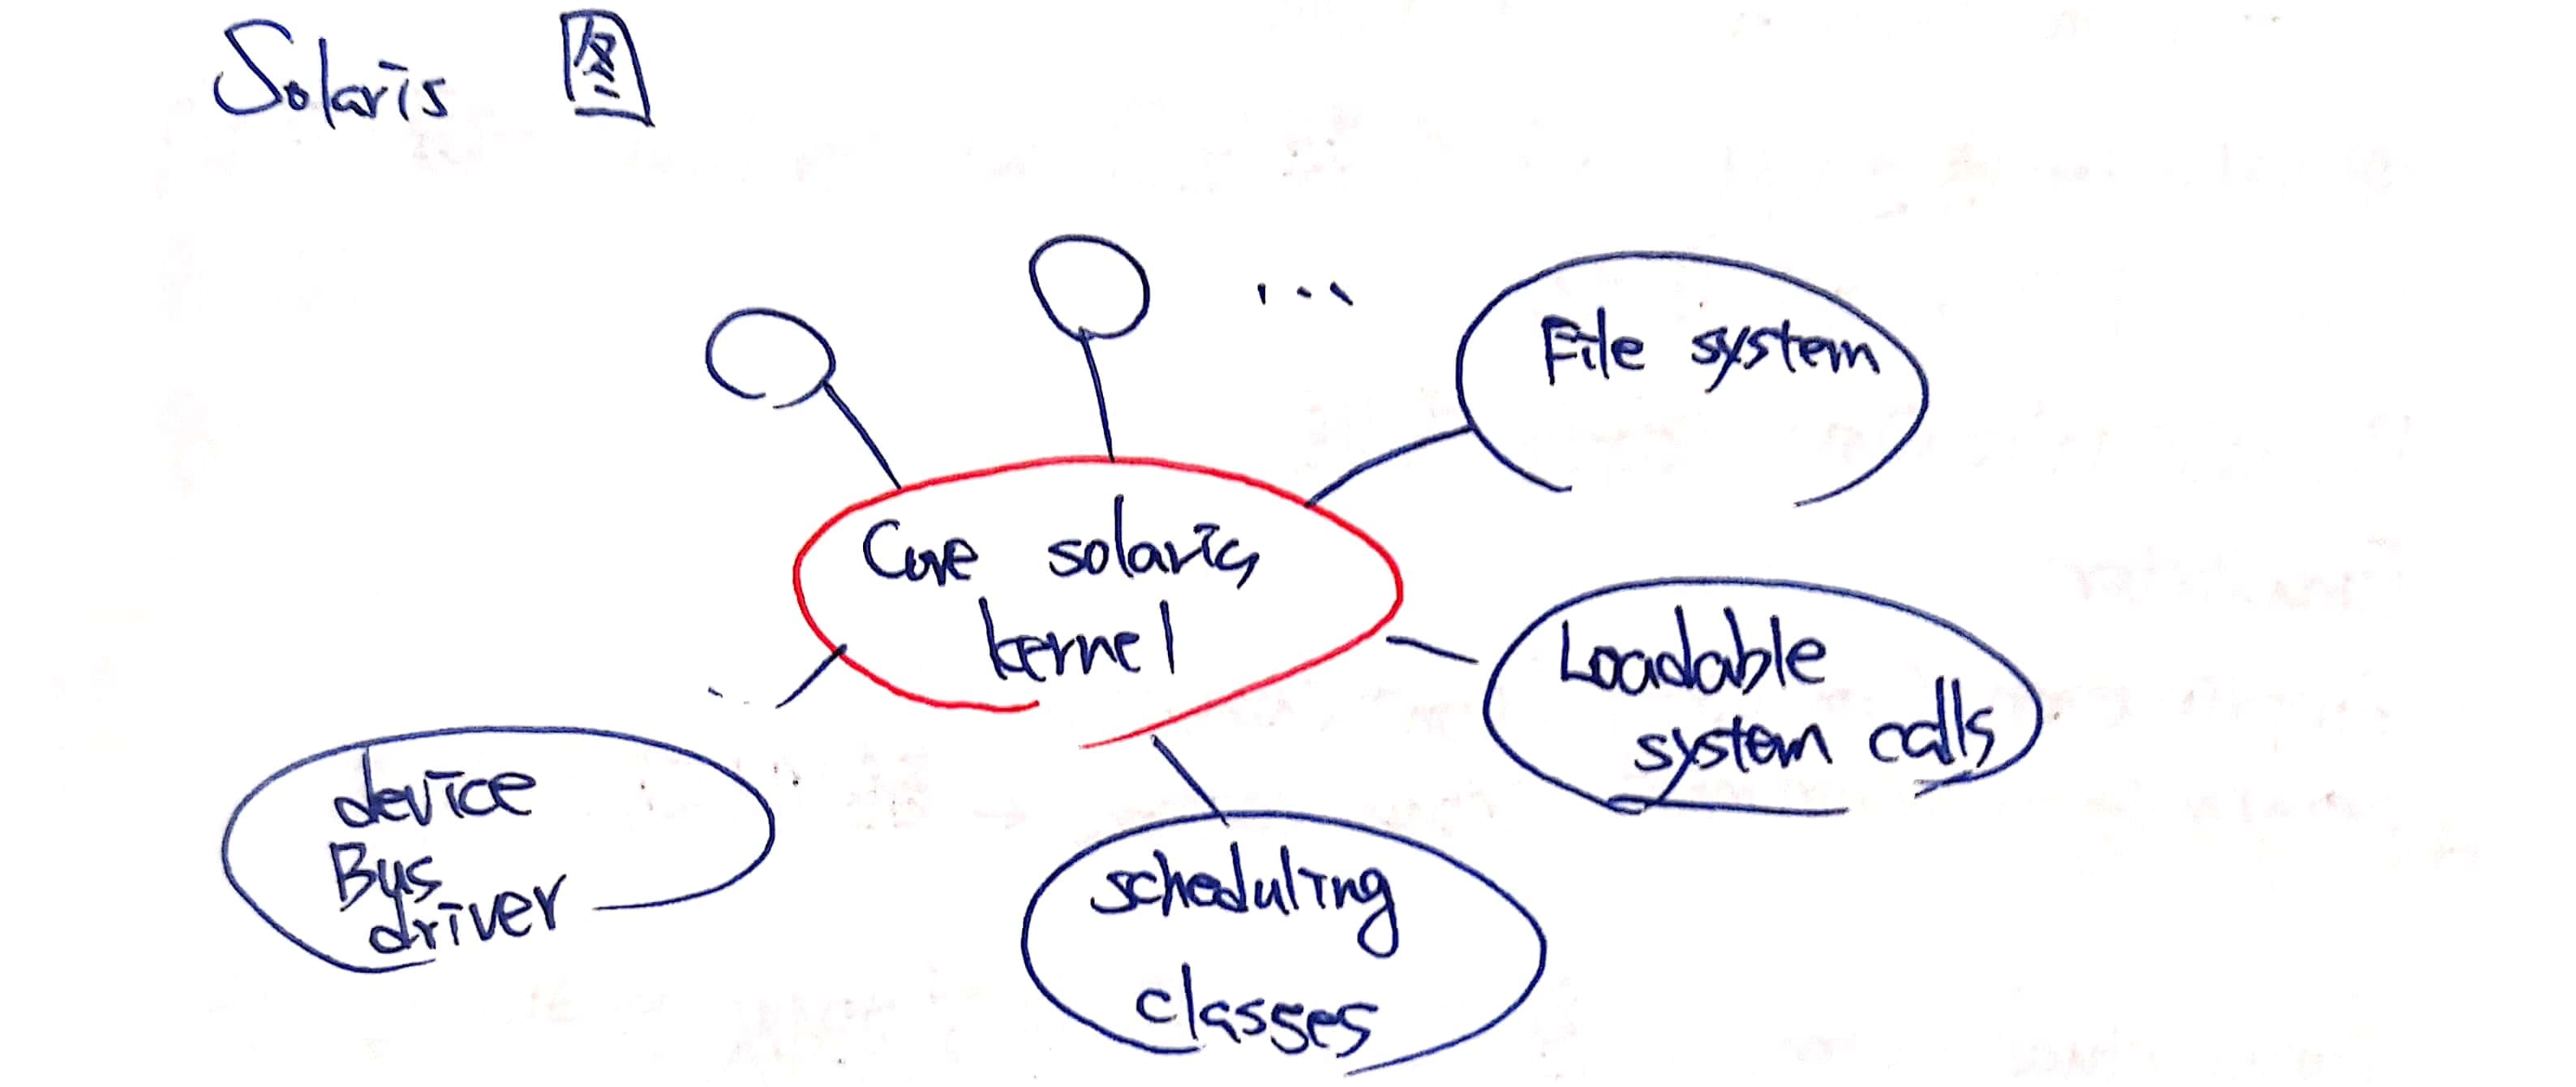 Solaris 图
...
File system
Core solaris
kernel
Loadable
system calls
device
Bus
driver
scheduling
classes